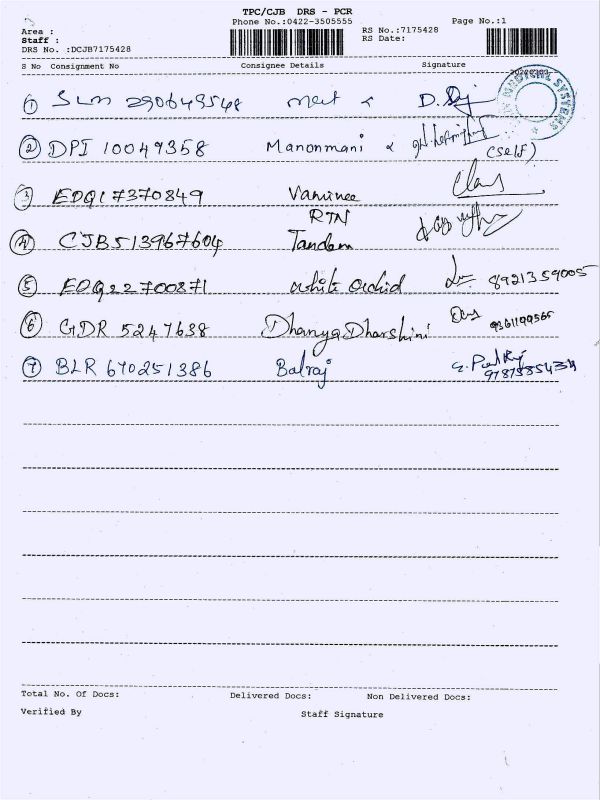 TPC/CJB DRS - PCR
Phone No.:0422-3505555 Page No.:1
Area :
Staff :
DRS No. :DCJB7175428
RS No.:7175428
RS Date:
S No Consignment No Consignee Details Signature
1 SLM 290643548
MEDICAL SYSTEMS
2 DPI 10049358 Manonmani (self)
3 EDQ17370849
RTN
4 CJB513967604 Tandem
5 EDQ22700871 White Orchid 8921359005
6 GDR 5247638 Dhanya Dharshini
7 BLR 670251386 Balraj
Total No. Of Docs: Delivered Docs: Non Delivered Docs:
Verified By Staff Signature